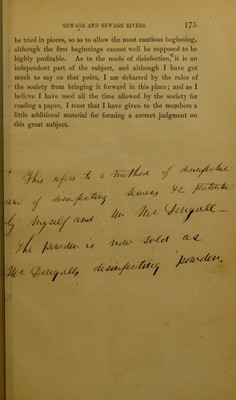 SEWAGE AND SEWAGE RIVERS 175
be tried in pieces, so as to allow the most cautious beginning,
although the first beginnings cannot well be supposed to be
highly profitable. As to the mode of disinfection,* it is an
independent part of the subject, and although I have got
much to say on that point, I am debarred by the rules of
the society from bringing it forward in this place; and as I
believe I have used all the time allowed by the society for
reading a paper, I trust that I have given to the members a
little additional material for forming a correct judgment on
this great subject.
* This refers to a method of disinfection
of disinfecting Sewers &c
by Myself and Mr Mc Dougall—
The Powder is now sold as
Mc Dougalls disinfecting powder.